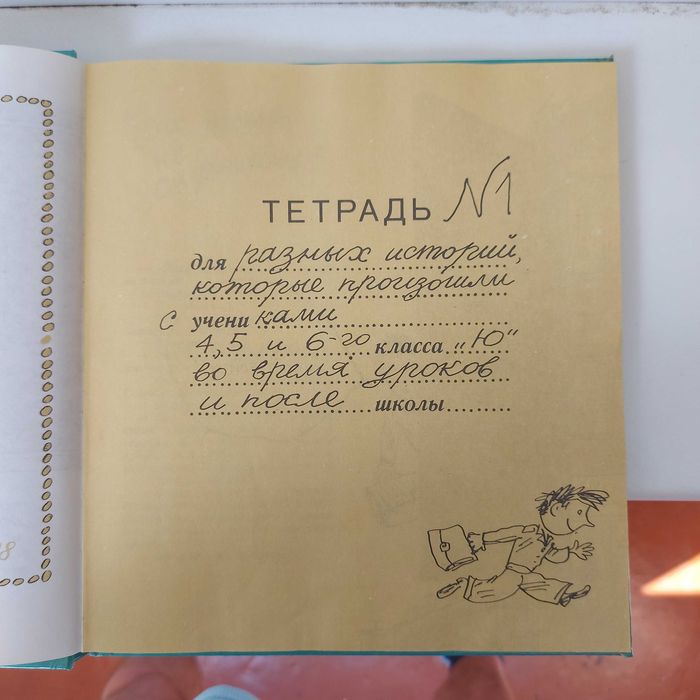 ТЕТРАДЬ N1
для разных историй,
которые произошли
с учениками
4, 5 и 6-го класса „Ю"
во время уроков
и после школы
8